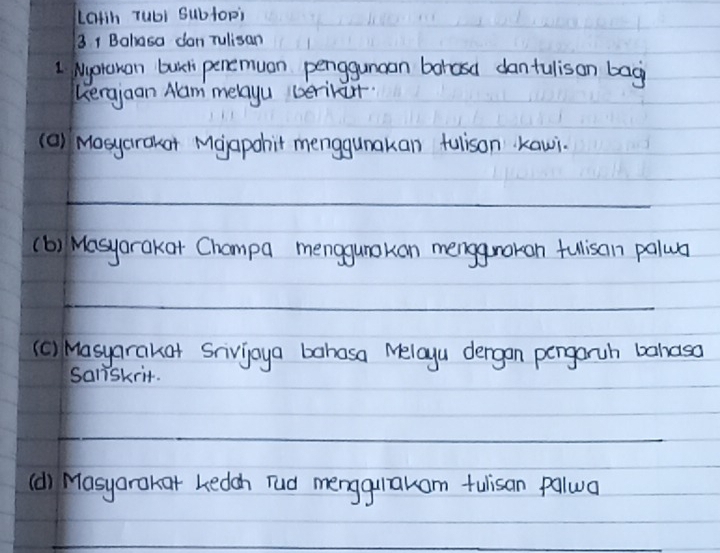 Latih Tubi Subtopi
3.1 Bahasa dan Tulisan
1. Nyatakan bukti penemuan penggunaan bahasa dan tulisan bagi
kerajaan Alam melayu berikut.
(a) Masyarakat Majapahit menggunakan tulisan kawi.
(b) Masyarakat Champa menggunakan menggunakan tulisan palwa
(c) Masyarakat Srivijaya bahasa Melayu dengan pengaruh bahasa
Sanskrit.
(d) Masyarakat kedah Tua menggunakam tulisan palwa